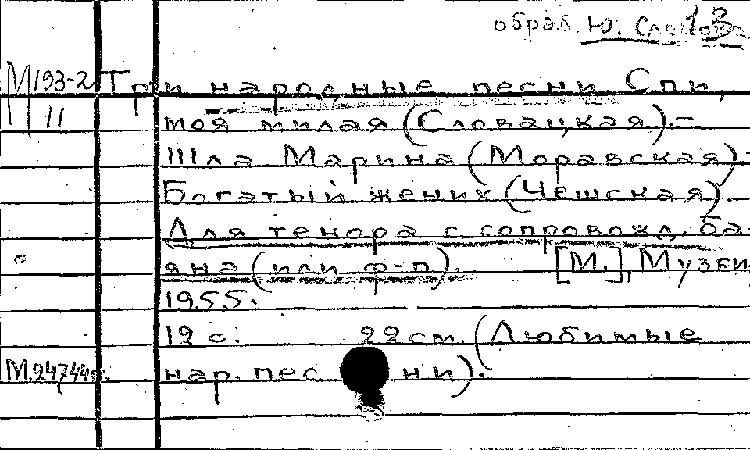 обраб. Ю.
13
М193-2 Три народные песни Спи,
11 моя милая (Словацкая).-
Шла Марина (Моравская)-
Богатый жених (Чешская).
Для тенора с сопровожд. ба-
яна (или ф-п). [М.], Музги
1955.
12 с. 22 см. (Любимые
нар. пес ни).